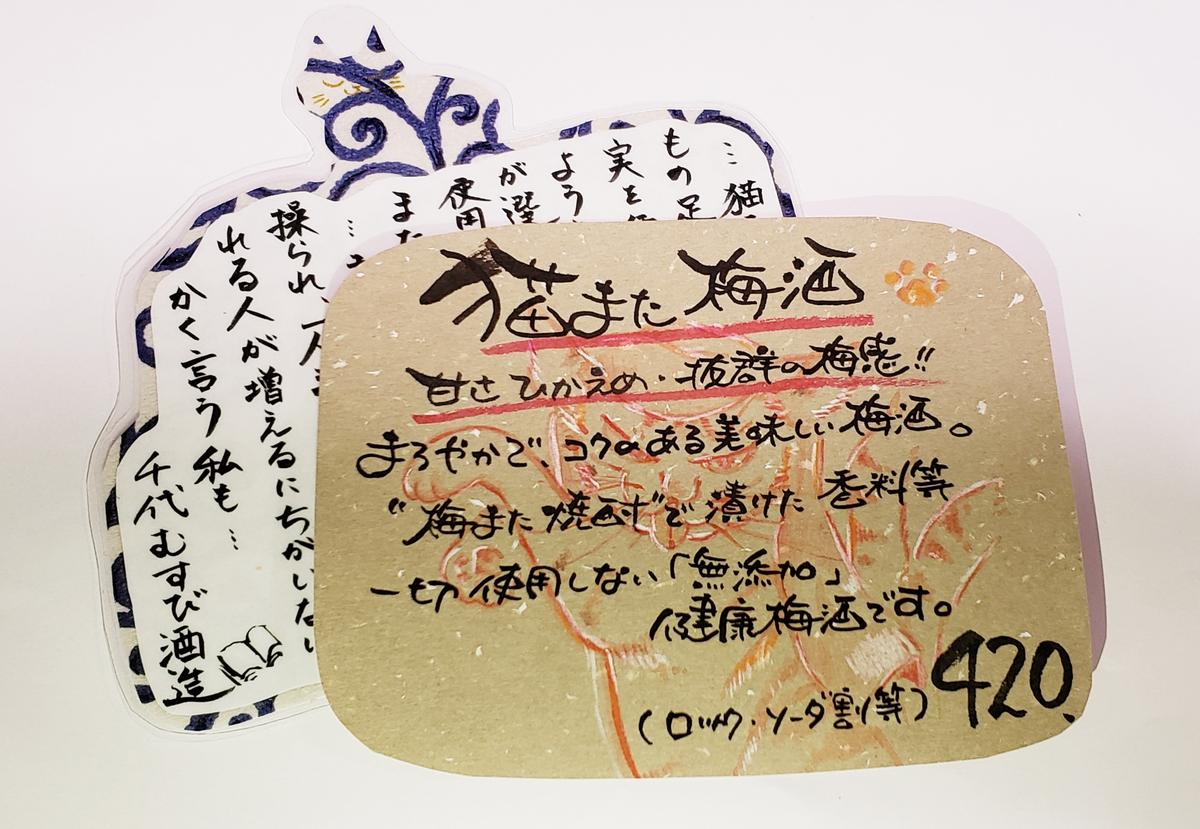 猫また梅酒
甘さひかえめ・抜群の梅感!!
まろやかで、コクのある美味しい梅酒。
“梅また焼酎”で漬けた 香料等
一切使用しない「無添加」
健康梅酒です。
(ロック・ソーダ割等) 420.
… 猫
もの足
実を
よう
が選
使用
また
…
操られ、人
れる人が増えるにちがいない
かく言う私も…
千代むすび酒造